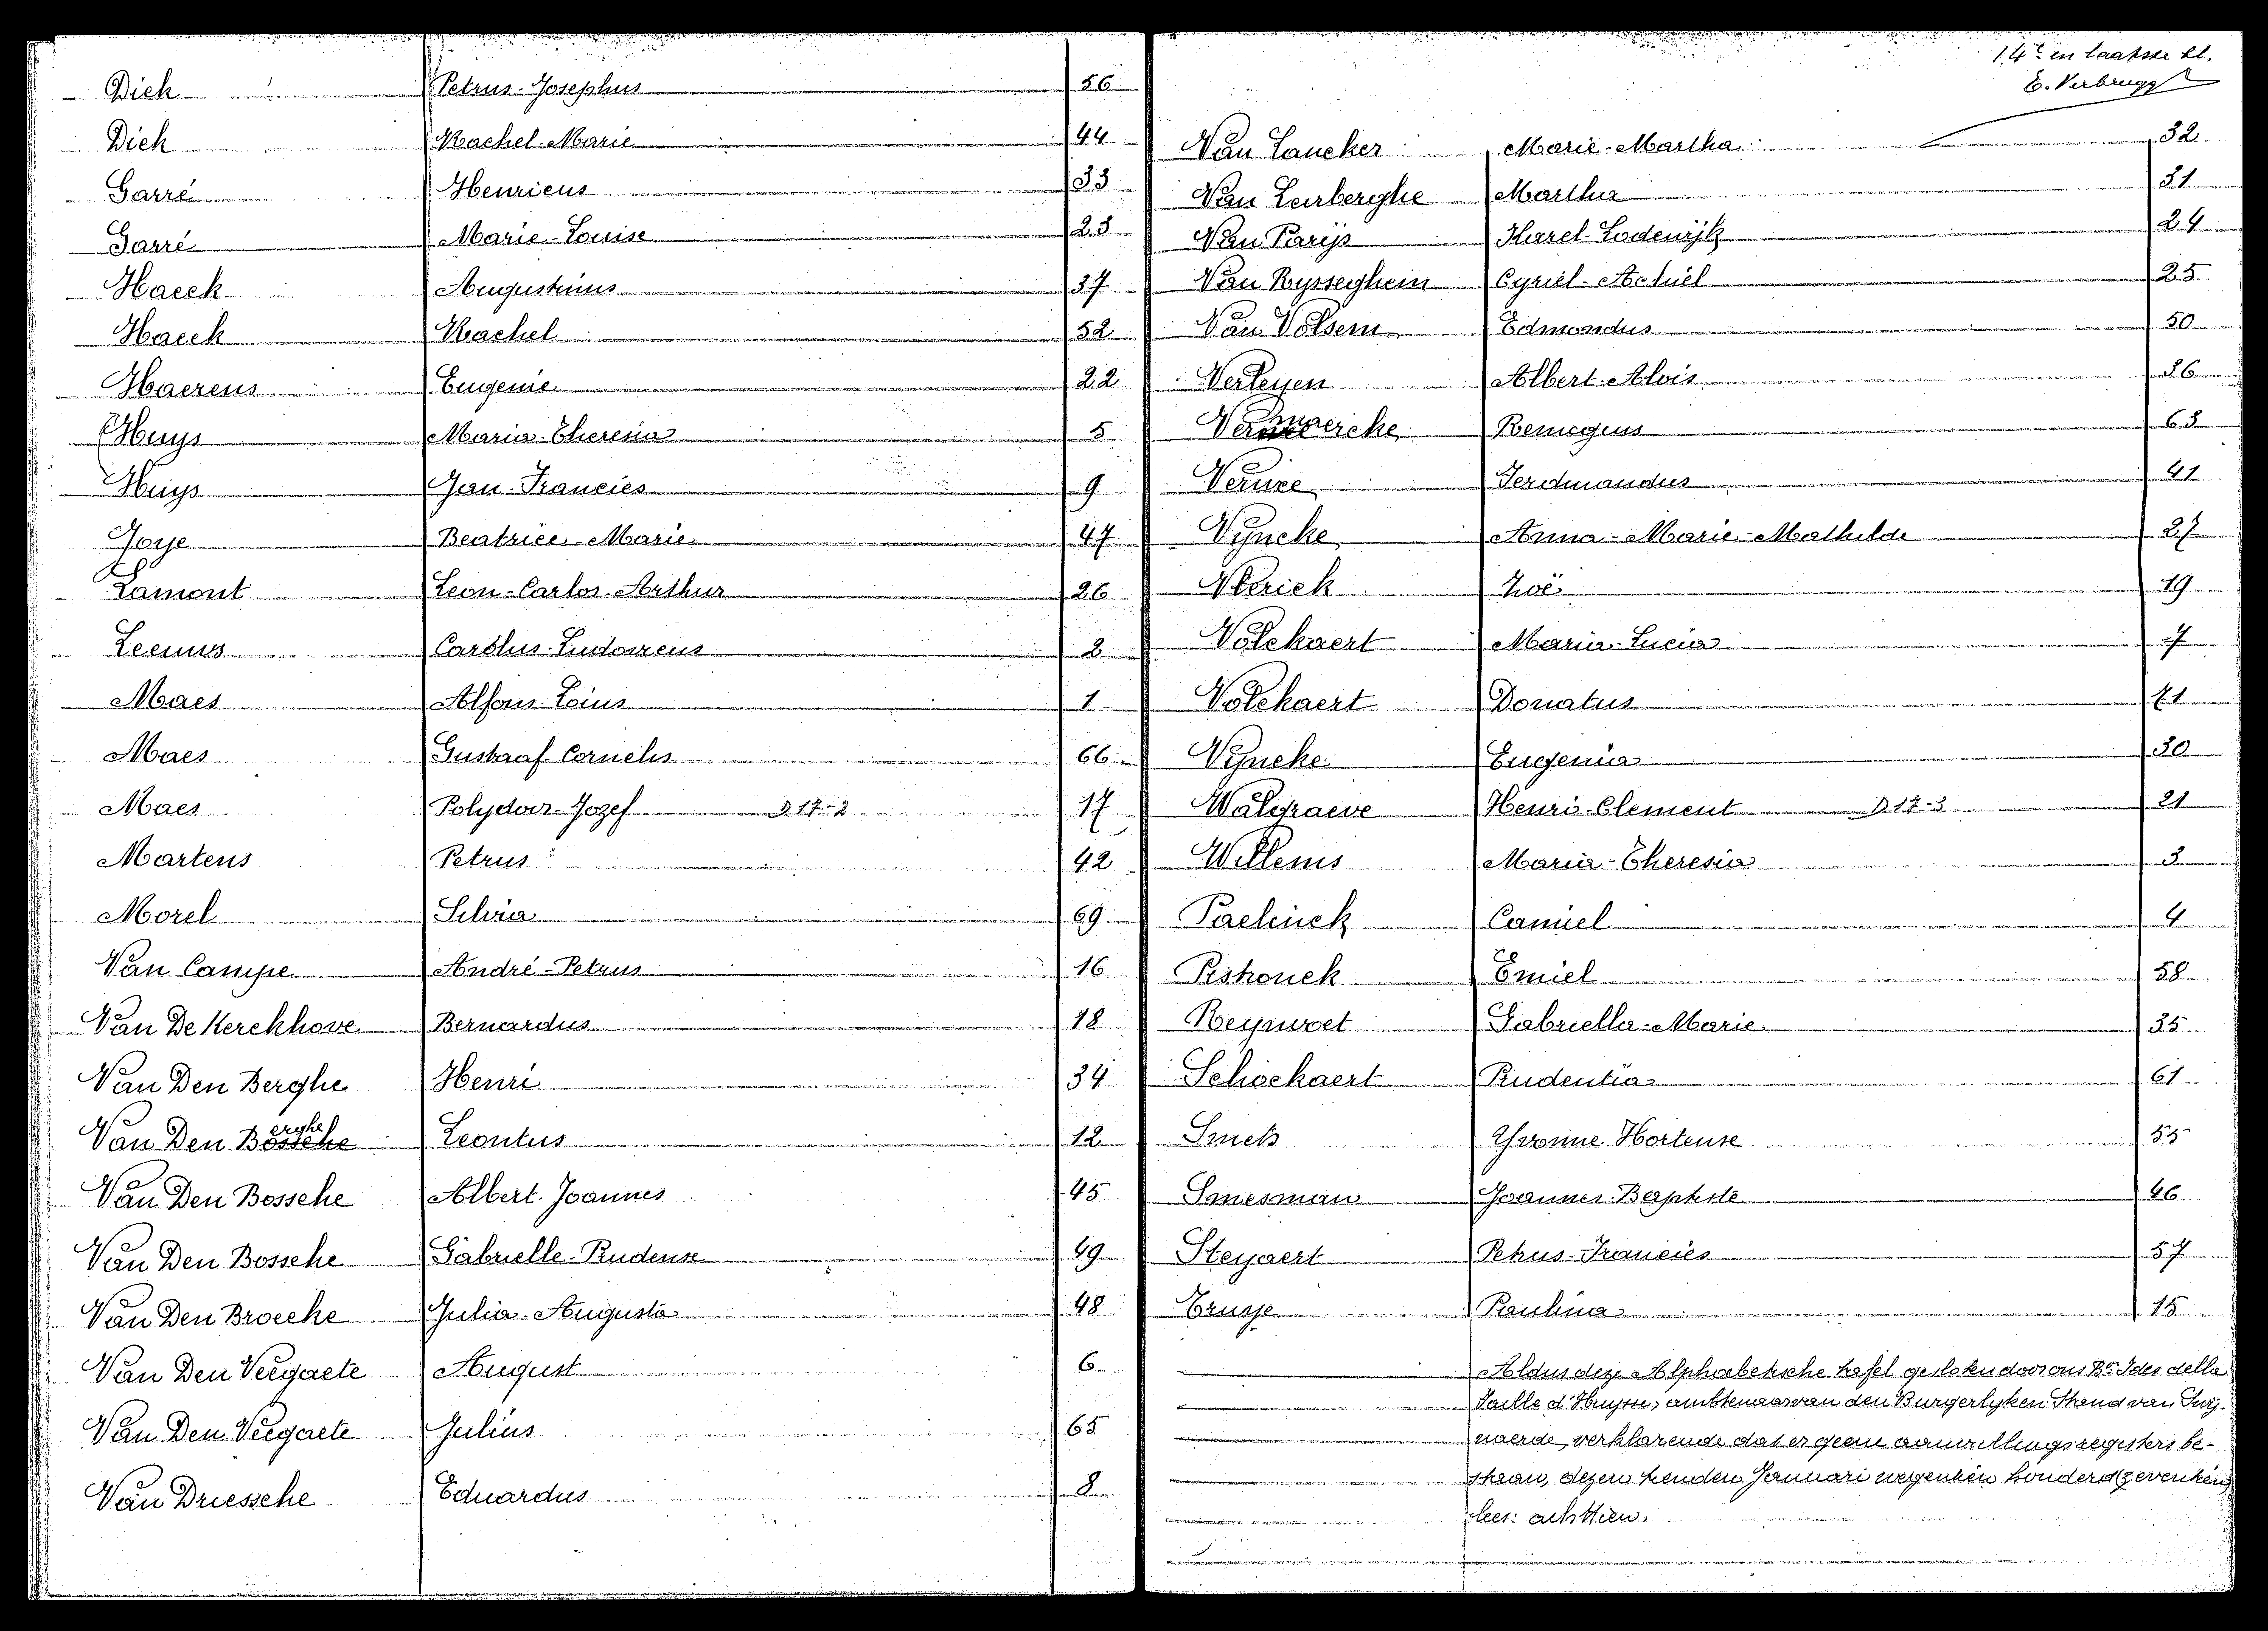 Dick Petrus-Josephus 56
Dick Rachel-Marie 44
Garré Henricus 33
Garré Marie-Louise 23
Haeck Augustinus 37
Haeck Rachel 52
Haerens Eugenie 22
Huys Maria-Theresia 5
Huys Jan-Francies 9
Joye Beatrice-Marie 47
Lamont Leon-Carlos-Arthur 26
Carolus-Ludovicus 2
Maes Alfons 1
Maes Gustaaf-Cornelis 66
Maes Polydoor-Jozef 17-2 17
Martens Petrus 42
Morel Silvia 69
Van Campe André-Petrus 16
Van De Kerckhove Bernardus 18
Van Den Berghe Henri 34
Van Den Bossche erghe Leontus 12
Van Den Bossche Albert-Joannes 45
Van Den Bossche Gabrielle-Prudense 49
Van Den Broecke Julia-Augusta 48
Van Den Veegaete August 6
Van Den Veegaete Julius 65
Van Driessche Eduardus 8
14e en laatste bl.
E. Verbrugg
Van Laucker Marie-Martha 32
Van Leirberghe Martha 31
Van Parijs Karel-Lodewijk 24
Van Rysseghem Cyriel-Achiel 25
Van Volsem Edmondus 50
Verleyen Albert-Alois 36
Remegius 63
Ferdinandus 41
Vyncke Anna-Marie-Mathilde 27
Zoë 19
Volckaert Maria-Lucia 7
Volckaert Donatus
Vyncke Eugenia 30
Walgraeve Henri-Clement 17-3 21
Willems Maria-Theresia 3
Paelinck Camiel 4
Pishonck Emiel 58
Reynvoet Gabriella-Marie 35
Schockaert Prudentia 61
Smets Yvonne Hortense 55
Smesman Joannes-Baptiste 46
Steyaert Petrus-Francies 57
Trusse Paulina 15
Aldus deze Alphabetische tafel gesloten door ons Bn Ides della
Faille d'Huysse, ambtenaar van den Burgerlyken Stand van Burj-
naerde, verklarende dat er geene aanvullingsregisters be-
staan, dezen tienden Januari negentien honderd zeventien
lees: achttien.